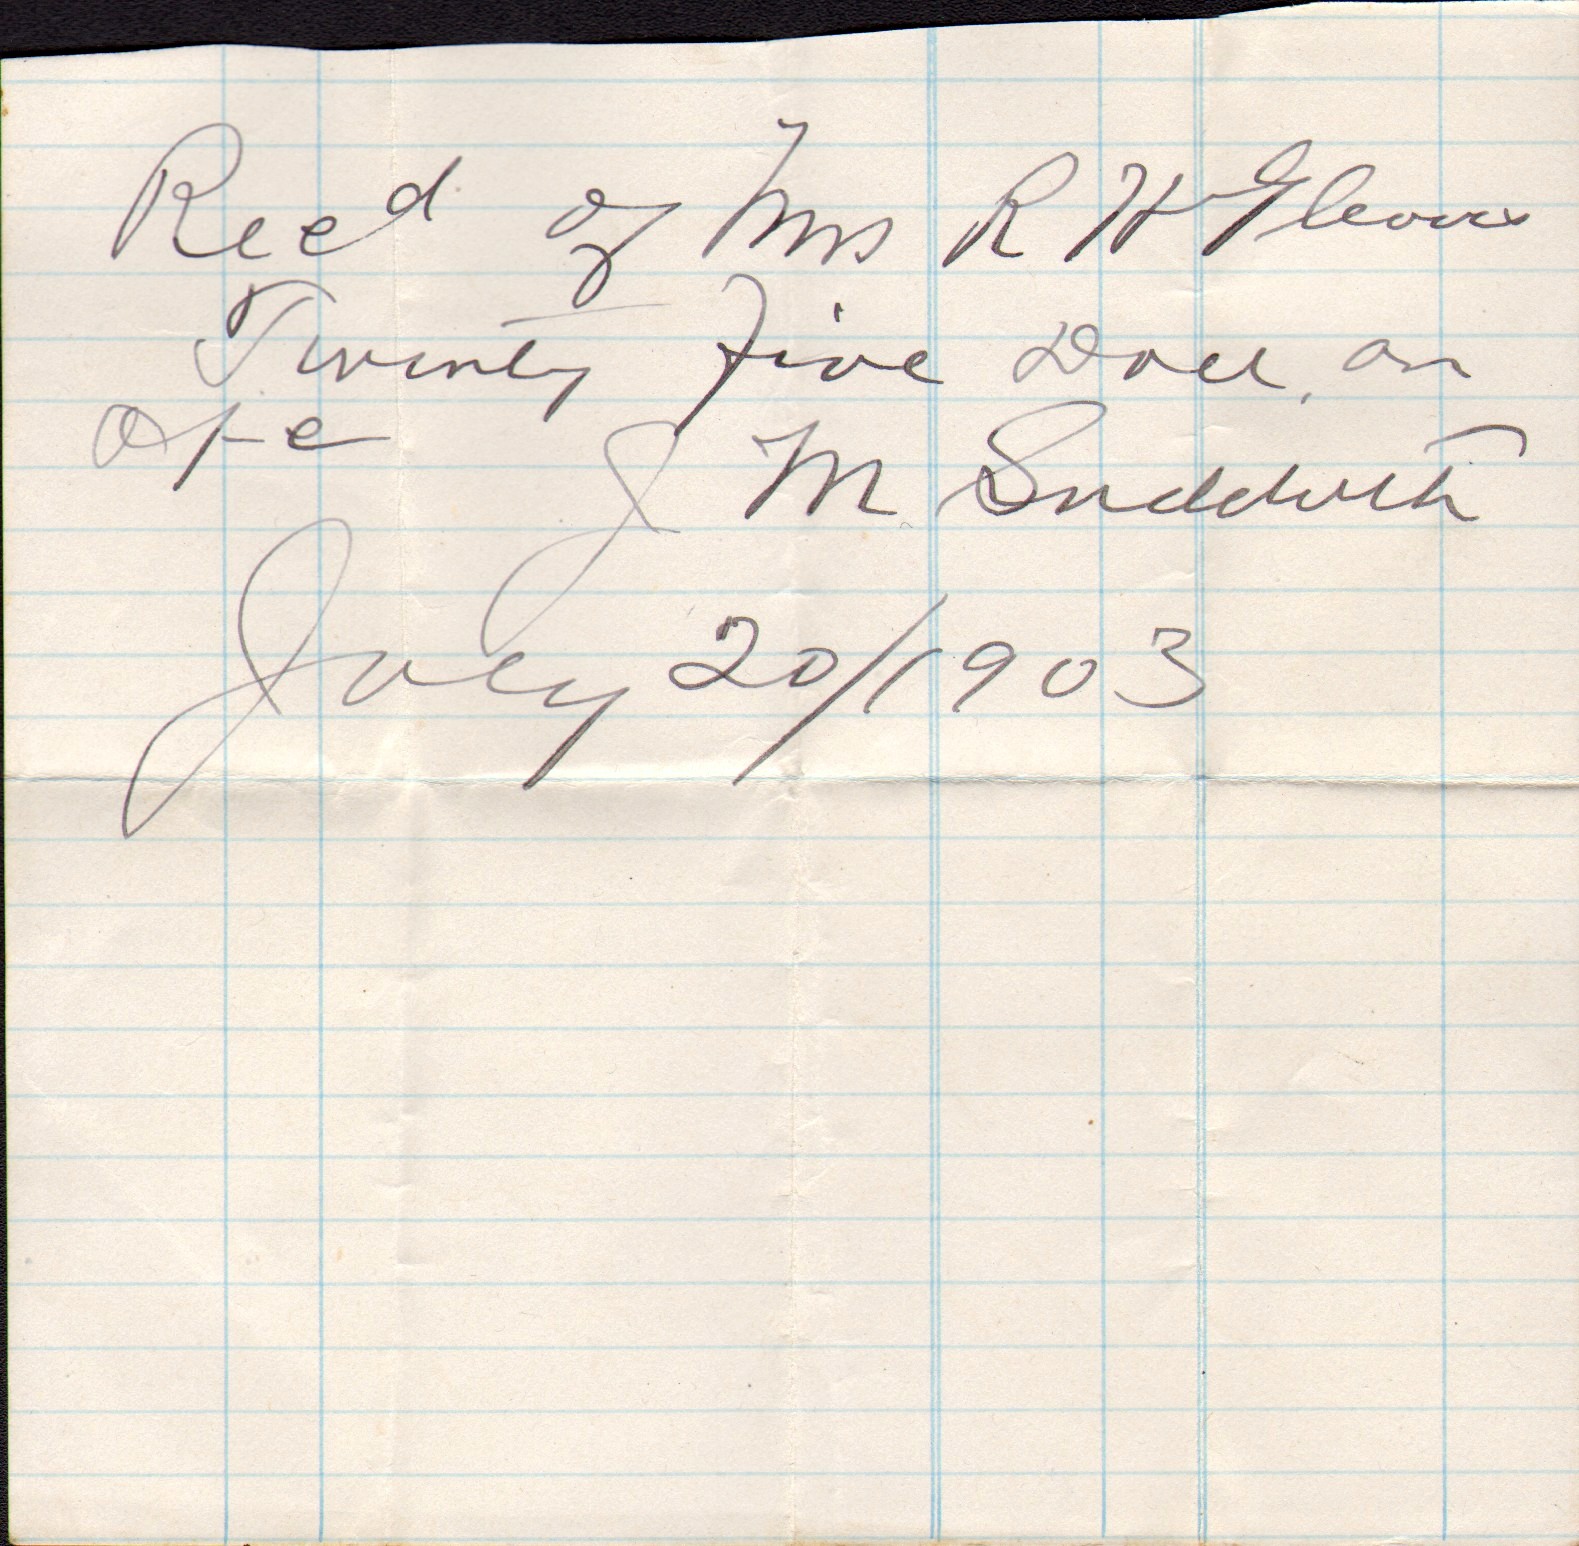 Recd of Mrs R H
Twenty Five Doll on
J M Suddoth
July 20/1903